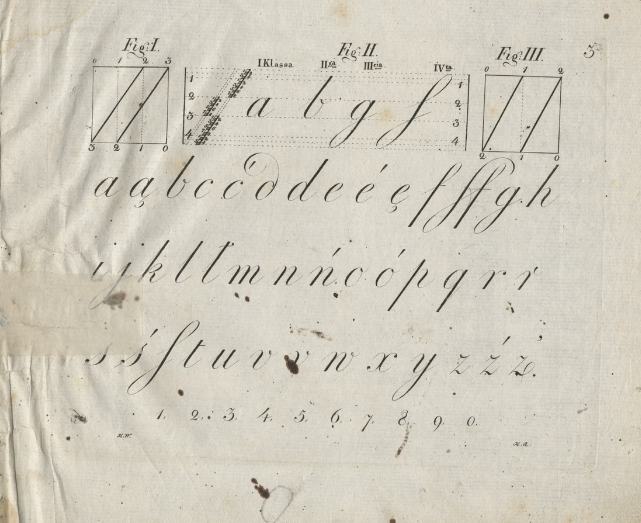 Fig: I. Fig: II. Fig: III. 5
0 1 2 3 I Klassa IIga IIIcia IVta 0 1 2
1 1
2 a b g ſ 2
3 3
4 4
3 2 1 0 2 1 0
a ą b c ć ó d d e é ę f ſſ g. h
i j k l ł m n ń o ó p q r r
s ś ſ t u v v w x y z ź ż.
1. 2. 3. 4. 5. 6. 7. 8. 9. 0.